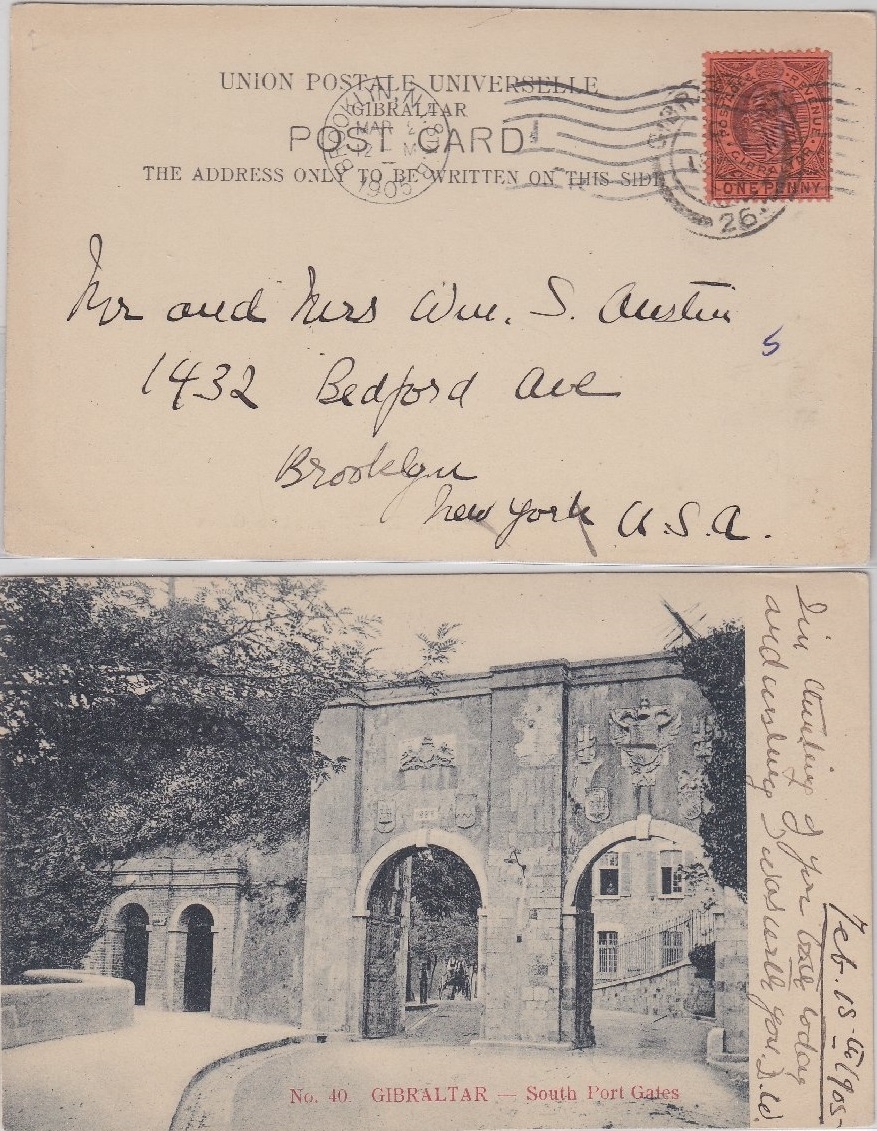 UNION POSTALE UNIVERSELLE
GIBRALTAR
POST CARD
THE ADDRESS ONLY TO BE WRITTEN ON THIS SIDE
BROOKLYN, N.Y.
MAR
12 M
1905
GIBR
26
POSTAGE & REVENUE
GIBRALTAR
ONE PENNY
Mr and Mrs Wm. S. Austin
5
1432 Bedford Ave
Brooklyn
New York U.S.A.
Feb. 18th 1905
I'm thinking of you both today
and wishing I was with you. D.W.
No. 40. GIBRALTAR — South Port Gates